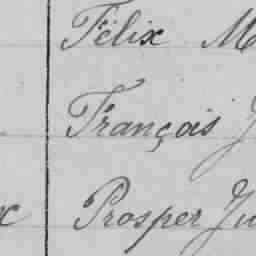 Félix M
François J
x Prosper Ju